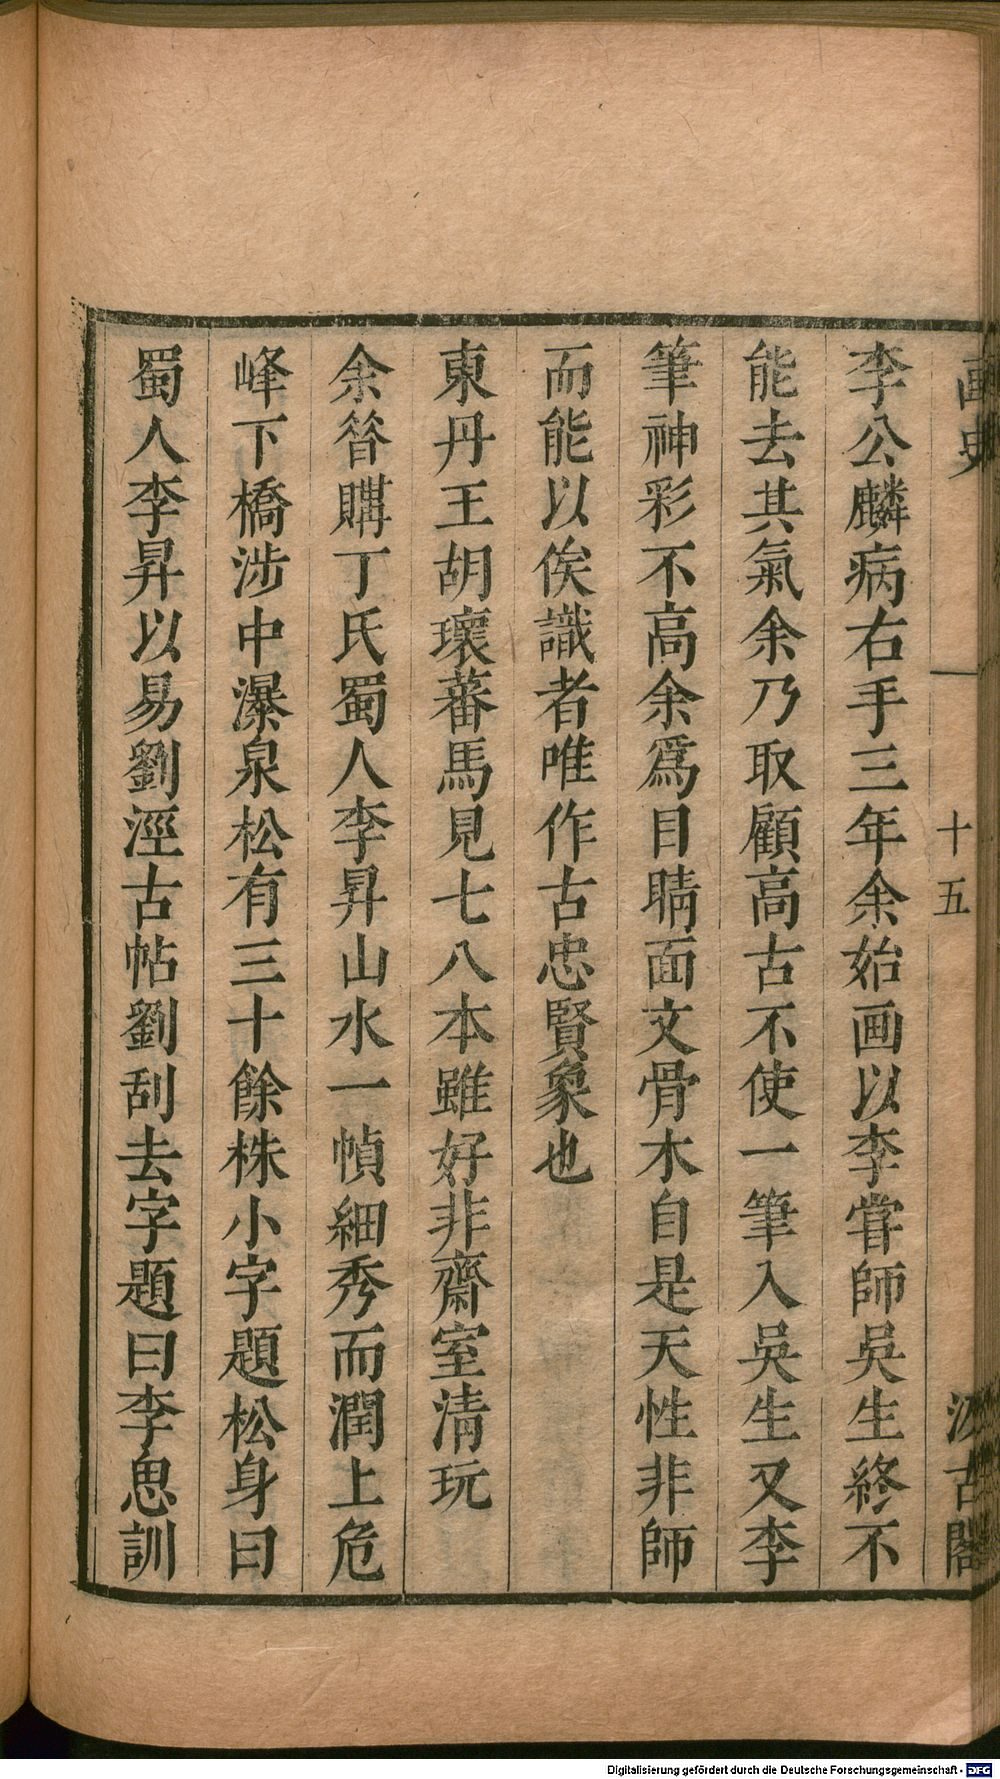 画史
十五
汲古閣
李公麟病右手三年余始画以李甞師吳生終不
能去其氣余乃取顧高古不使一筆入吳生又李
筆神彩不高余爲目睛面文骨木自是天性非師
而能以俟識者唯作古忠賢象也
東丹王胡瓌蕃馬見七八本雖好非齋室清玩
余昝購丁氏蜀人李昇山水一幀細秀而潤上危
峰下橋涉中瀑泉松有三十餘株小字題松身曰
蜀人李昇以易劉涇古帖劉刮去字題曰李思訓
Digitalisierung gefördert durch die Deutsche Forschungsgemeinschaft - DFG